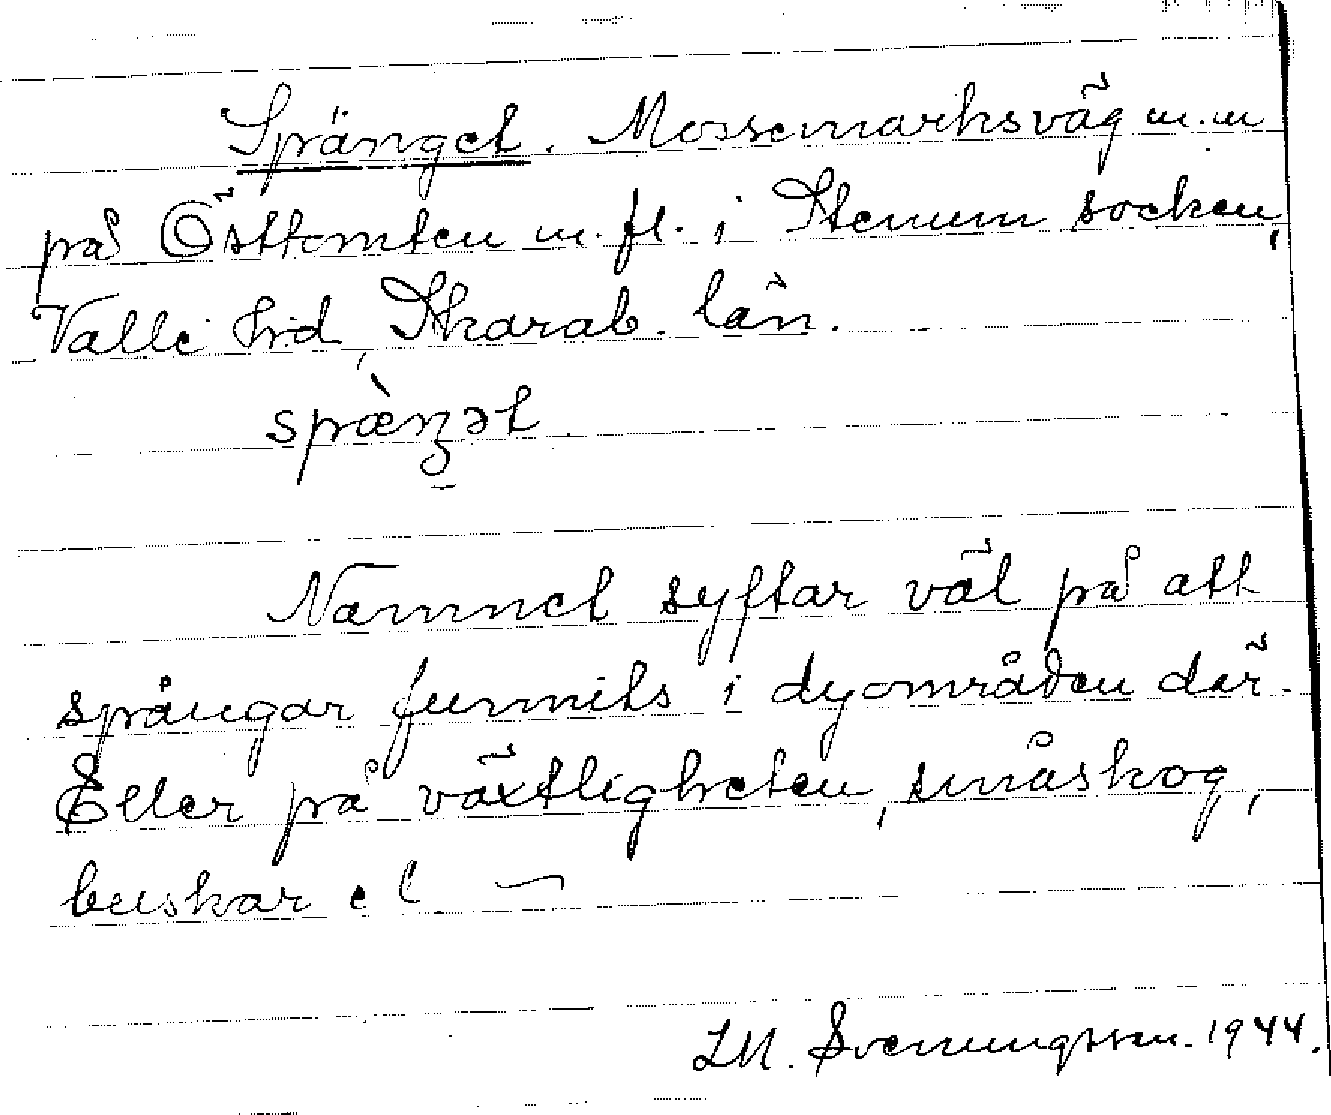 Spänget. Mossemarksväg m.m
på Östtomten m.fl. i Stenum socken,
Valle hd, Skarab. län.
spæ̀ŋət
Namnet syftar väl på att
spångar funnits i dyområden där.
Eller på växtligheten, småskog,
buskar e l
Svenungsson. 1944.